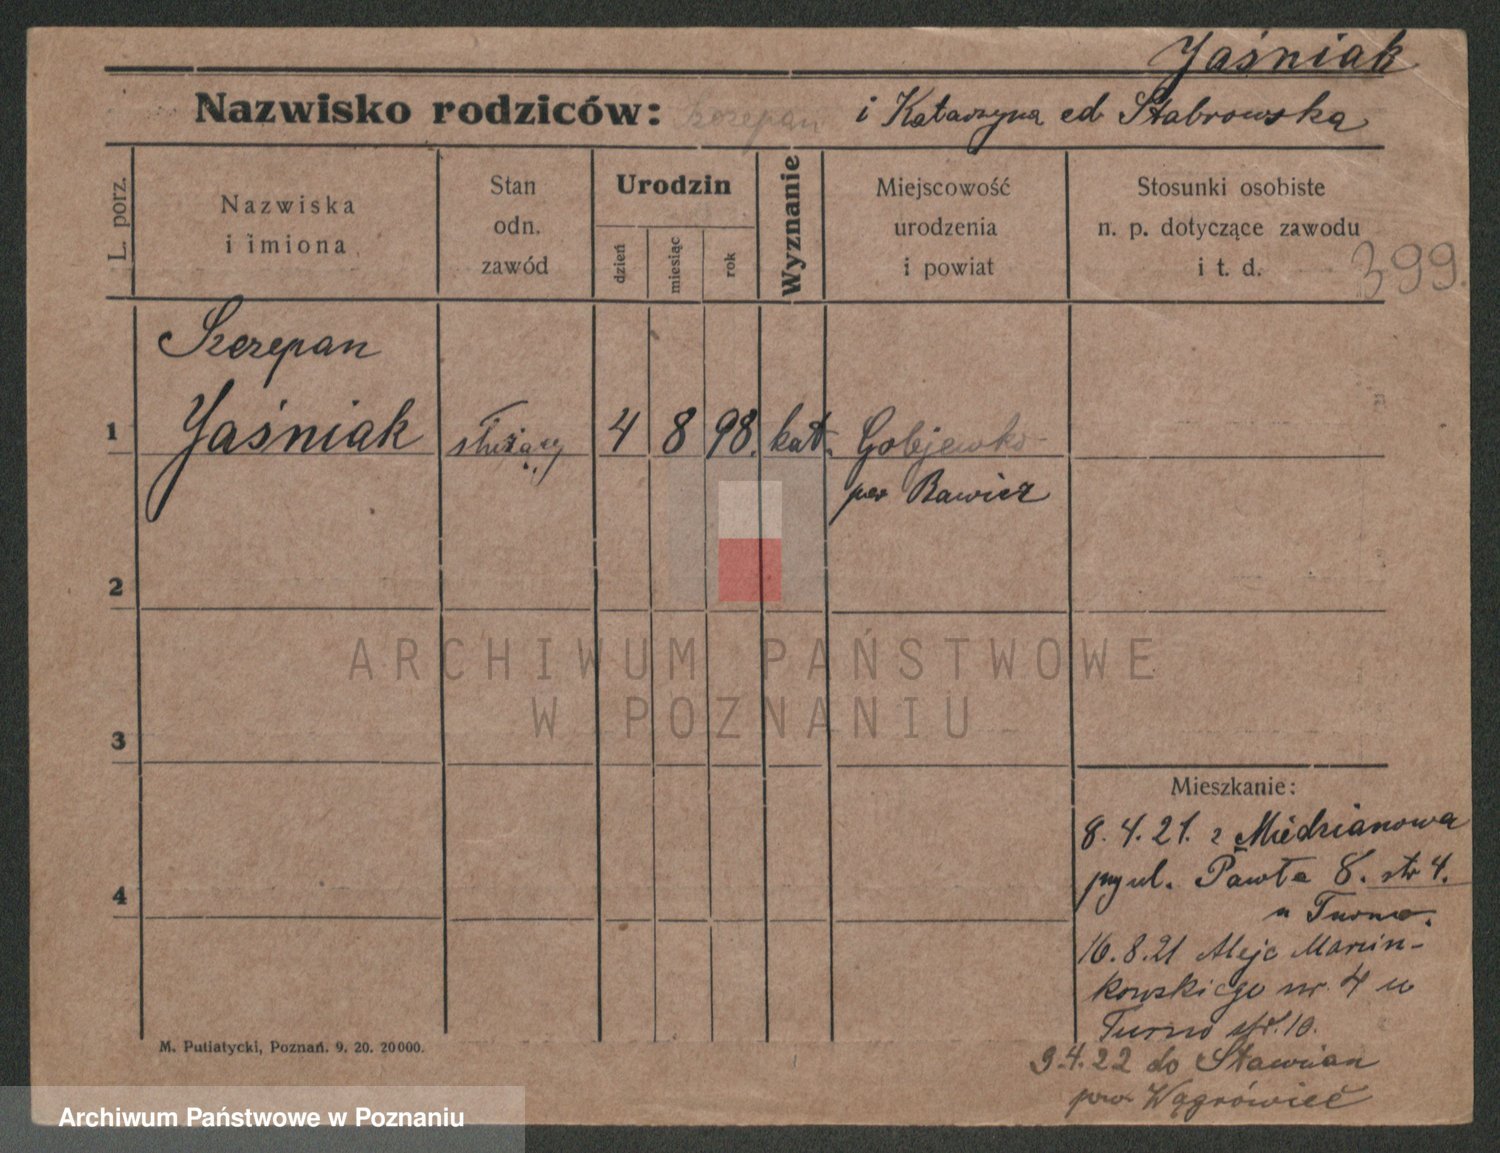 Jaśniak
Nazwisko rodziców: Szczepan i Katarzyna ed Stabrowska
L. porz.
Nazwiska
i imiona
Stan
odn.
zawód
Urodzin
dzień
miesiąc
rok
Wyznanie
Miejscowość
urodzenia
i powiat
Stosunki osobiste
n. p. dotyczące zawodu
i t. d.
399.
Szczepan
1 Jaśniak służący 4 8 98. kat. Golejewko
pow Rawicz
2
3
4
Mieszkanie:
8. 4. 21. z Miedzianowa
ul. Pawła 8. str 4.
u Turno.
16. 8. 21 Aleje Marcin-
kowskiego nr. 4 u
Turno str. 10.
9. 4. 22 do Stawian
pow Wągrówiec
M. Putiatycki, Poznań. 9. 20. 20000.
ARCHIWUM PAŃSTWOWE
W POZNANIU
Archiwum Państwowe w Poznaniu